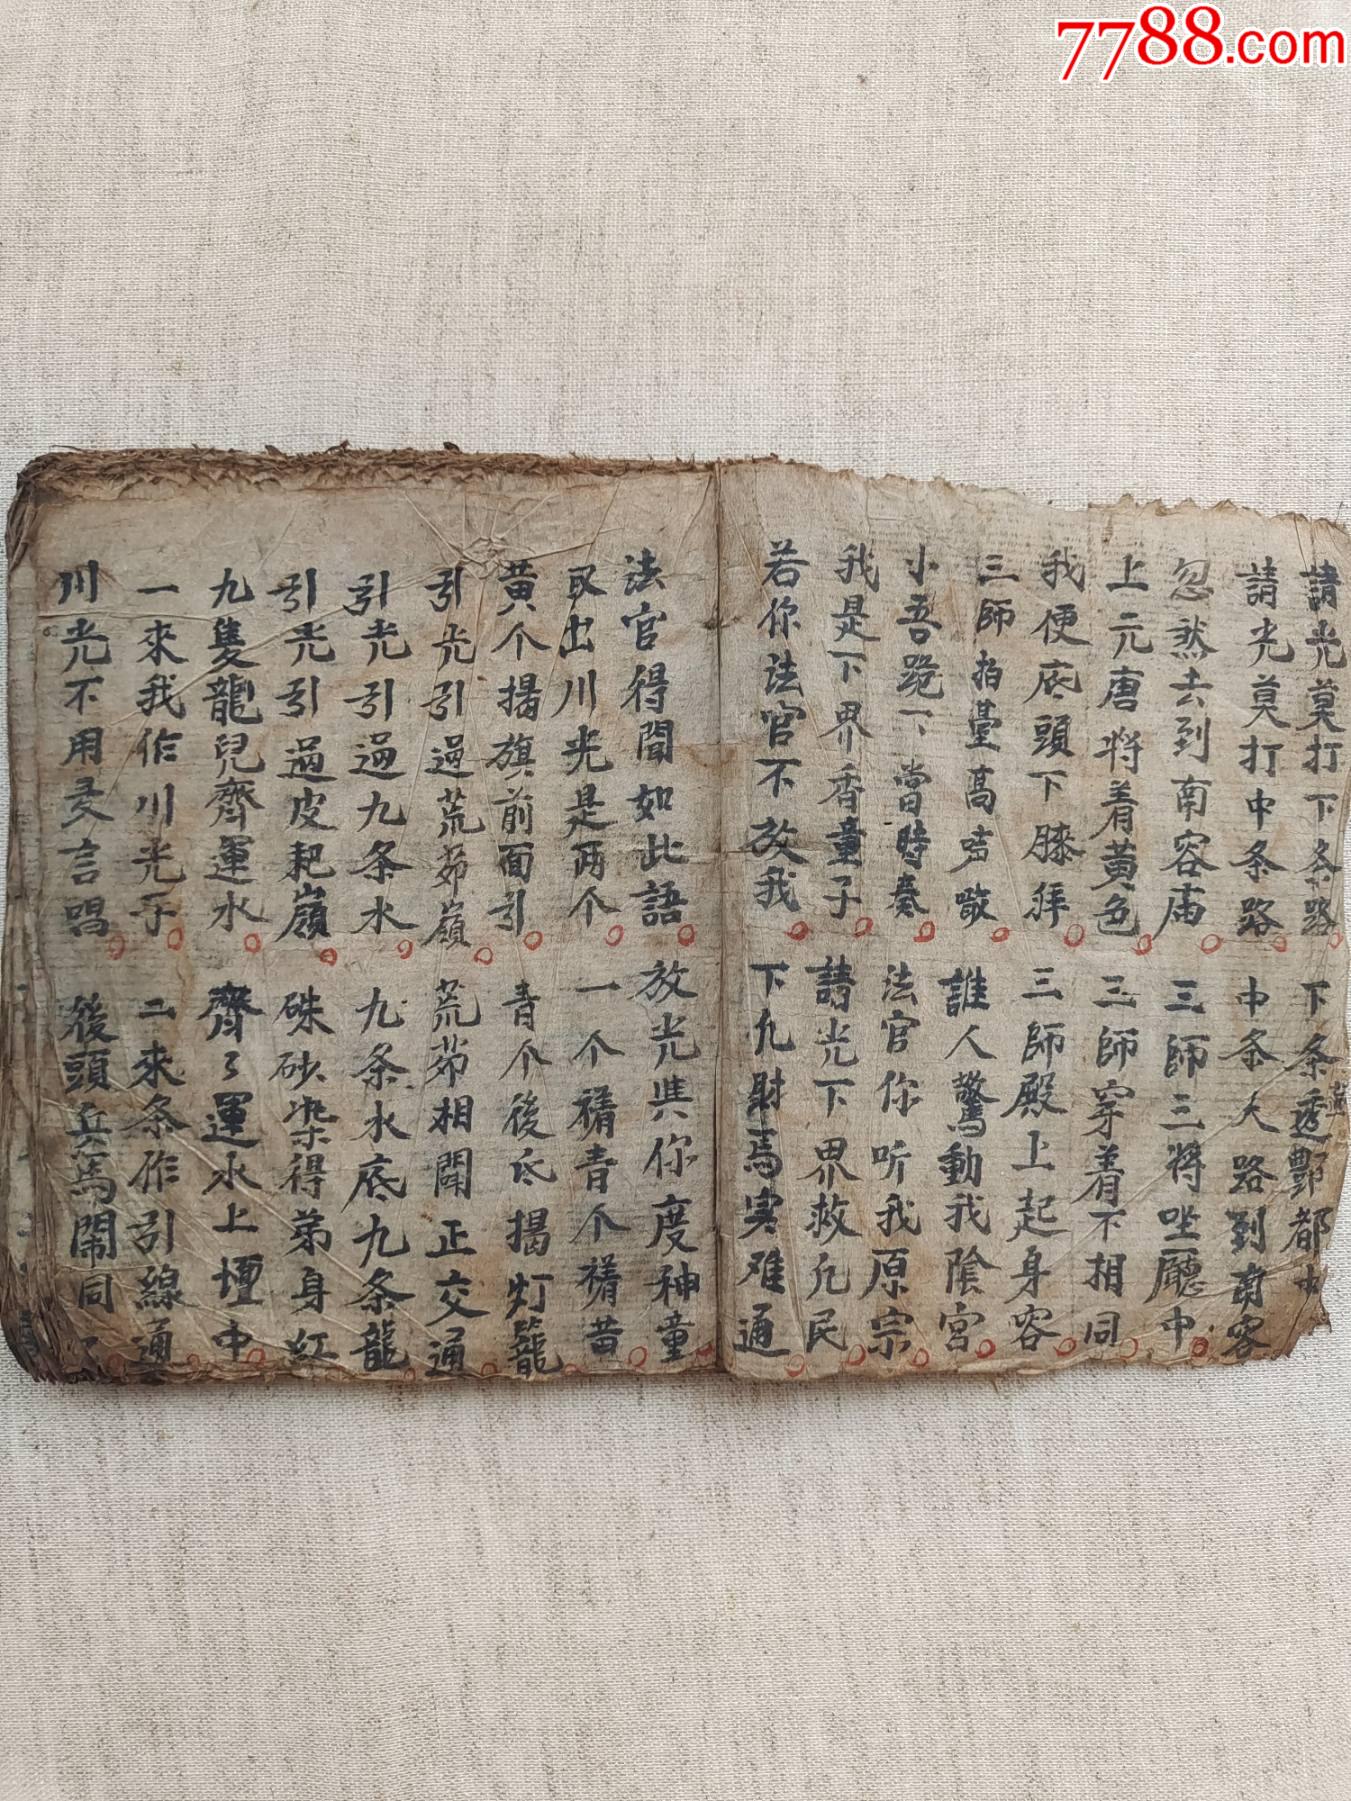 7788.com
請光莫打下条路 下条透酆都中
請光莫打中条路 中条大路到南容
忽然去到南容庙 三師三将坐廳中
上元唐将着黄色 三師穿着不相同
我便底頭下膝拜 三師殿上起身容
三師拍臺高声 誰人驚動我陰宮
小吾跪下當時奏 法官你听我原宗
我是下界香童子 請光下界救凡民
若你法官不放我 下凡財馬实难通
法官得聞如此語 放光與你度神童
取出川光是两个 一个青个
黄个揚旗前面引 青个後底揭灯籠
引光引過荒茆嶺 荒茆相開正交通
引光引過九条水 九条水底九条龍
引光引過皮耙嶺 硃砂染得弟身紅
九隻龍兒齊運水 齊了運水上壇中
一來我作川光子 二來条作引線通
川光不用言唱 後頭兵馬閙同